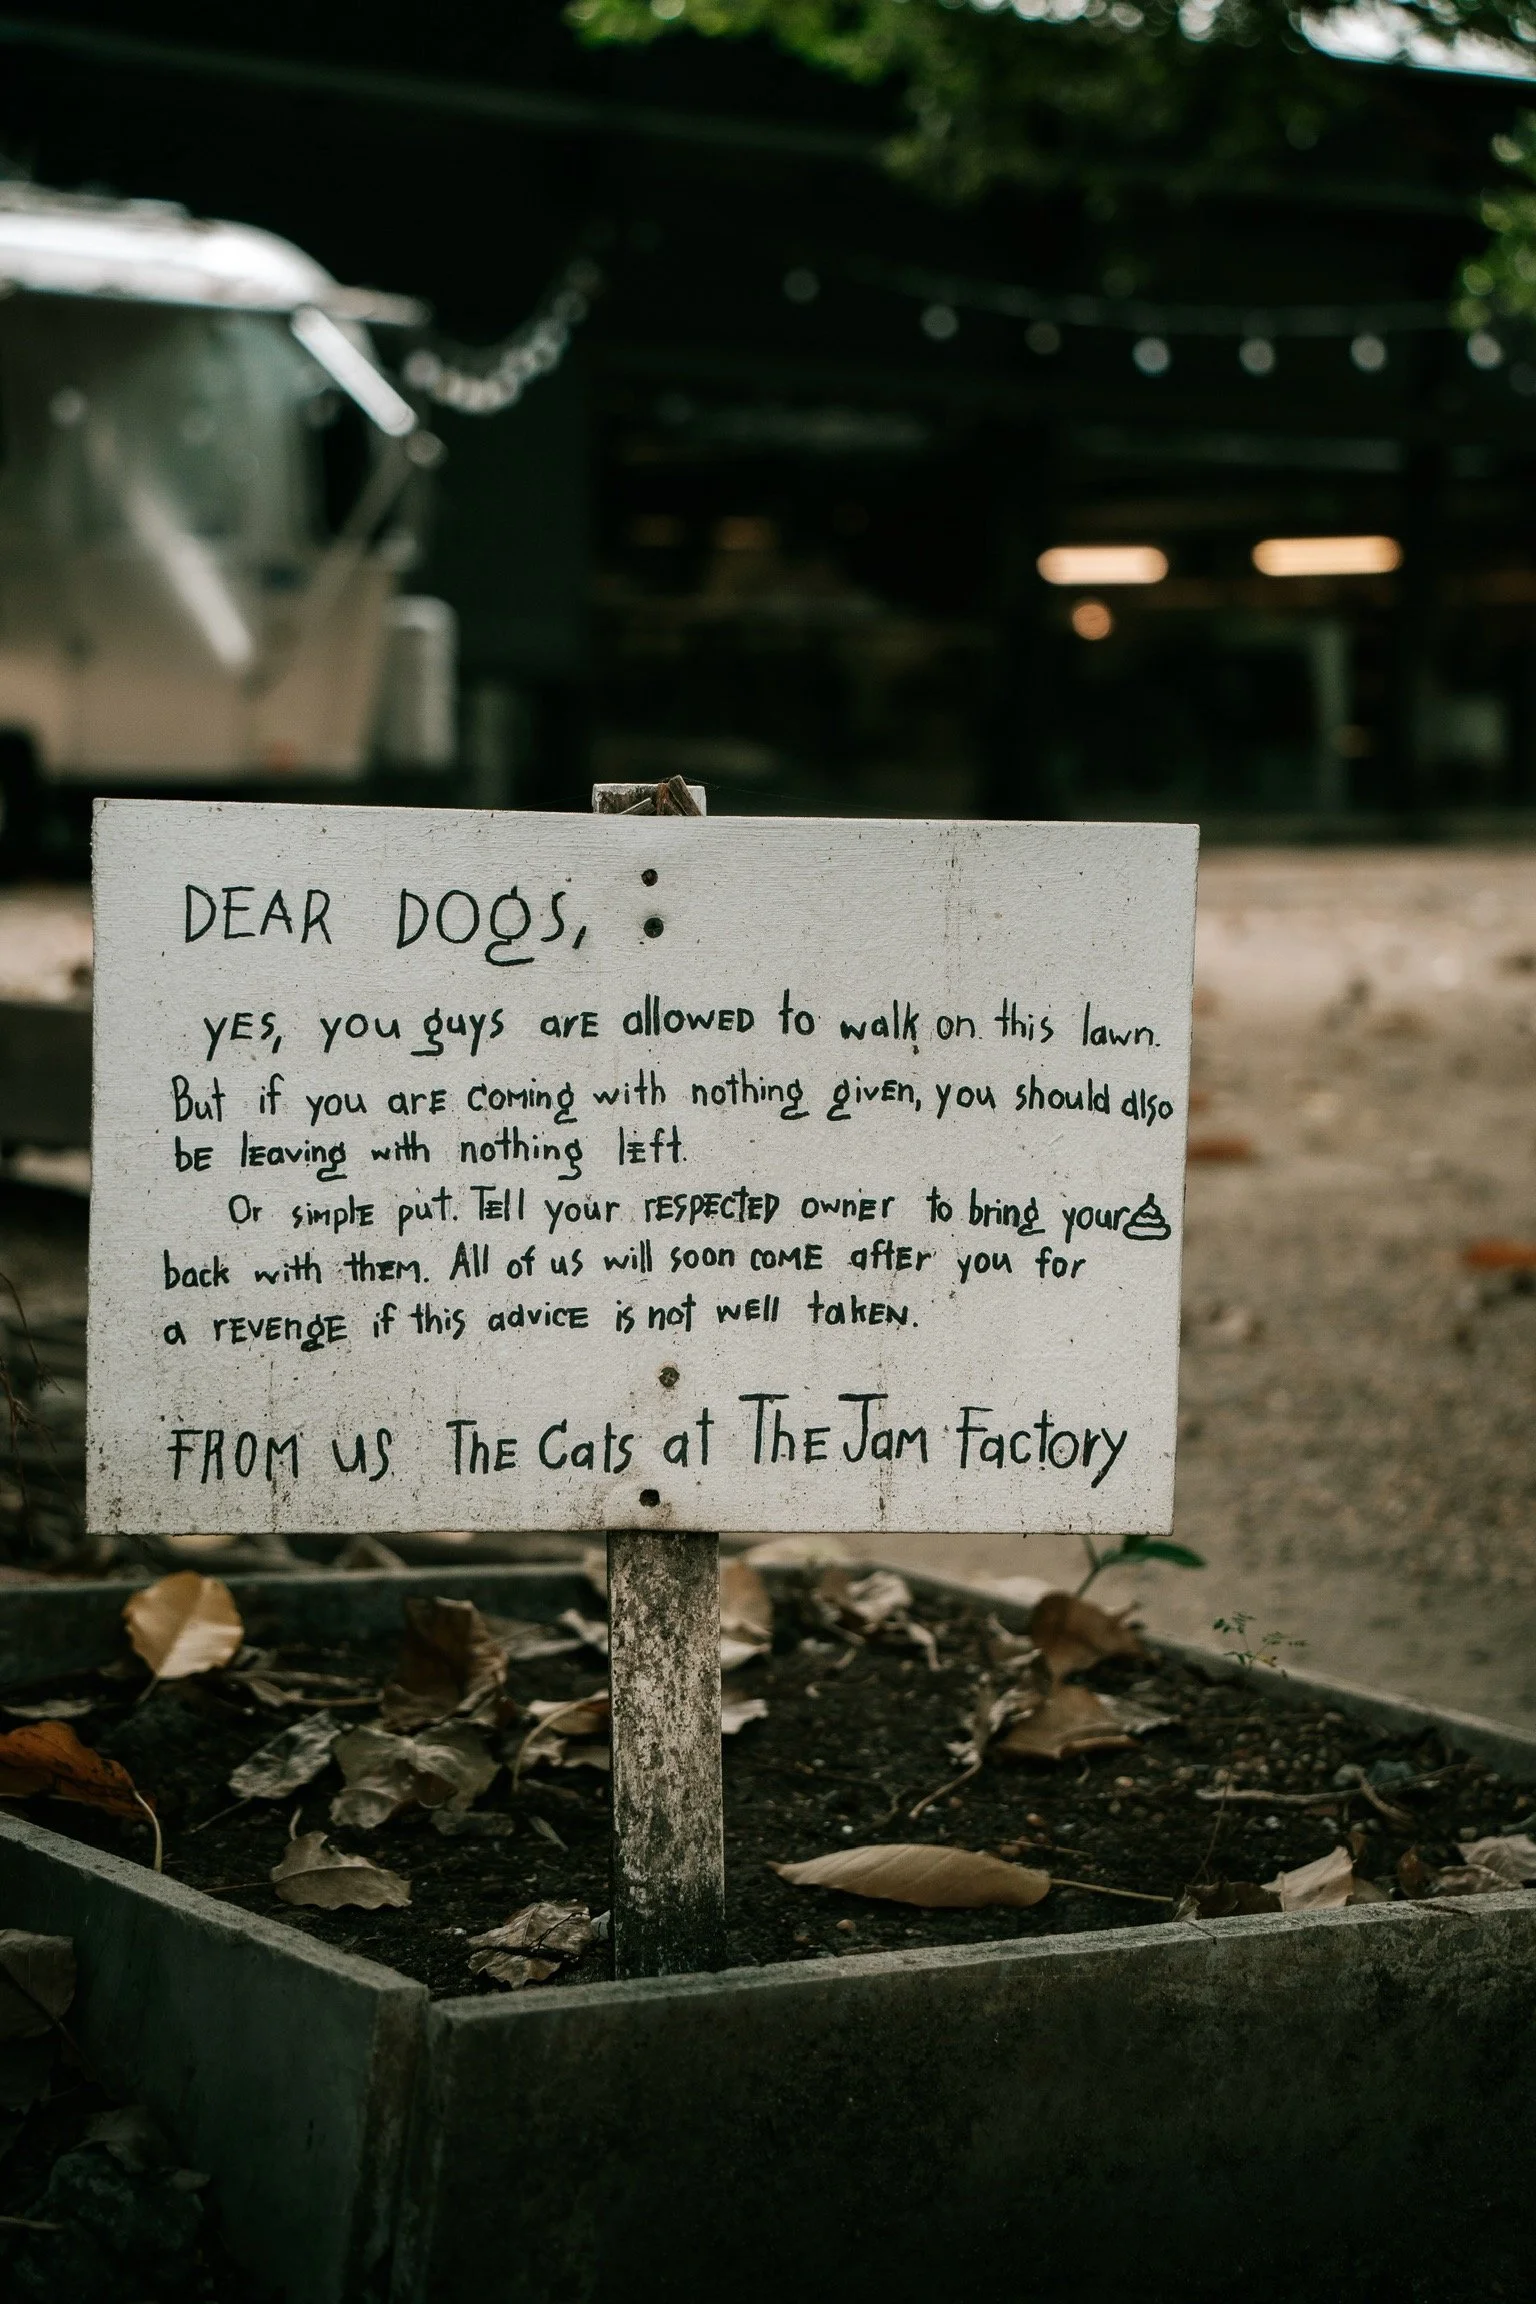 DEAR DOGS,
YES, you guys are allowed to walk on this lawn.
But if you are coming with nothing given, you should also
be leaving with nothing left.
Or simple put. Tell your RESPECTED owner to bring your💩
back with them. All of us will soon come after you for
a REVENGE if this advice is not well taken.
FROM US The Cats at The Jam Factory